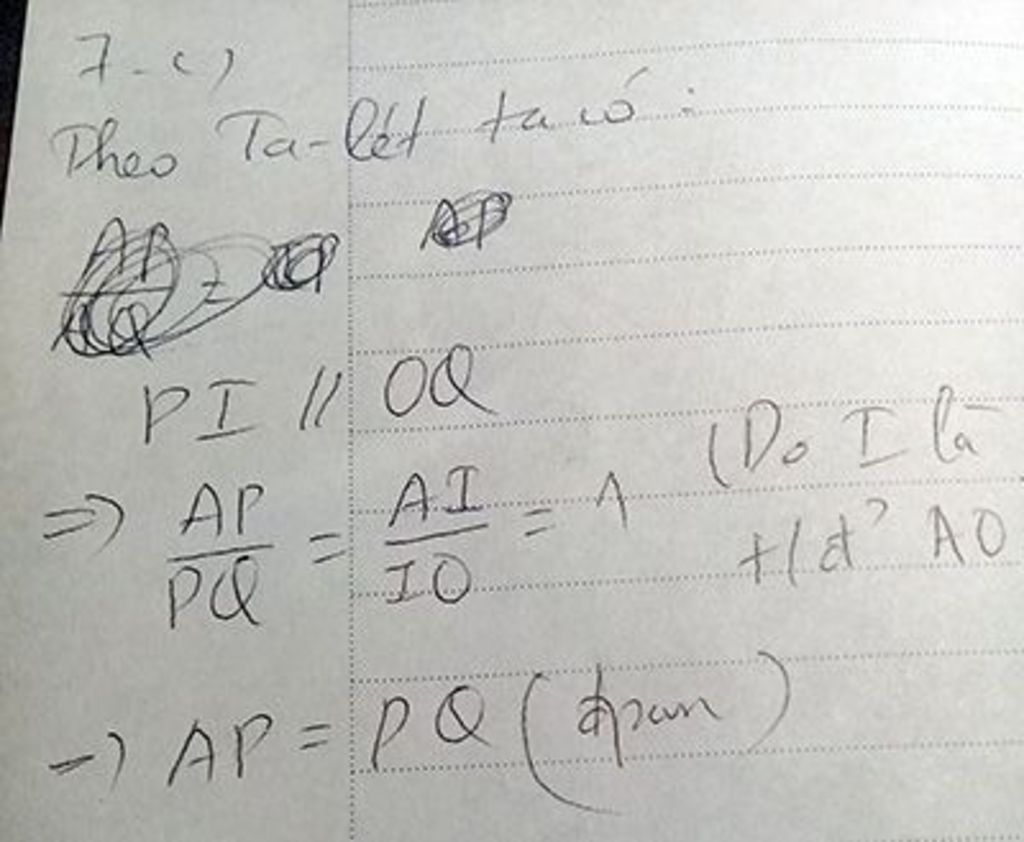 7-c)
Theo Ta-lét ta có:
PI // OQ
=> AP/PQ = AI/IO = 1 (Do I là
t/đ' AO
-> AP = PQ (đpcm)